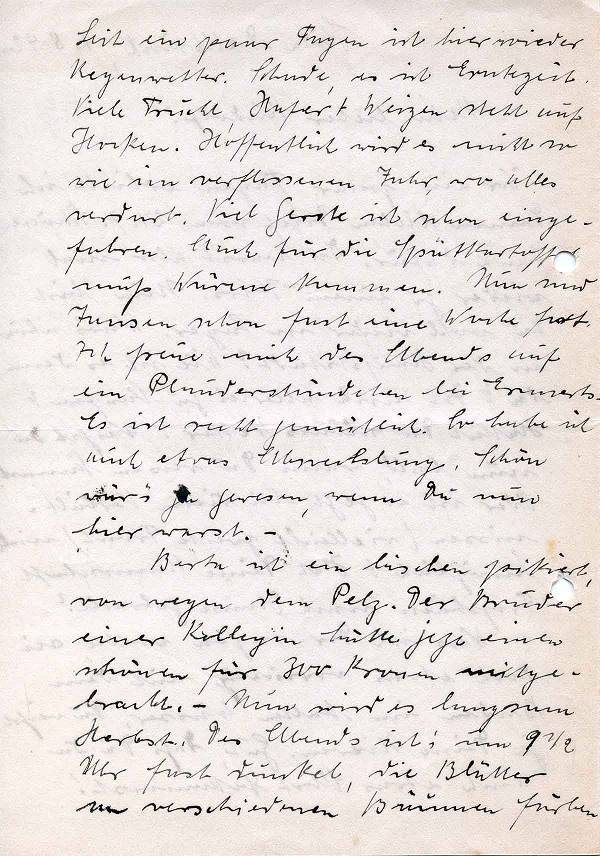 Seit ein paar Tagen ist hier wieder
Regenwetter. Schade, es ist Erntezeit.
Viele Frucht, Hafer + Weizen steht auf
Hocken. Hoffentlich wird es nicht so
wie im verflossenen Jahr, wo alles
verdarb. Viel Gerste ist schon einge-
fahren. Auch für die Spätkartoffel
muß Wärme kommen. Nun sind
Jansen schon fast eine Woche fort.
Ich freue mich des Abends auf
ein Plauderstündchen bei Ermerts.
Es ist recht gemütlich. So habe ich
auch etwas Abwechslung. Schön
wär's ja gewesen, wenn Du nun
hier warst. -
Berta ist ein bischen pikiert,
von wegen dem Pelz. Der Bruder
einer Kollegin hätte jeze einen
schönen für 300 Kronen mitge-
bracht. - Nun wird es langsam
Herbst. Des Abends ist's um 9 1/2
Uhr fast dunkel, die Blätter
an verschiedenen Bäumen färben